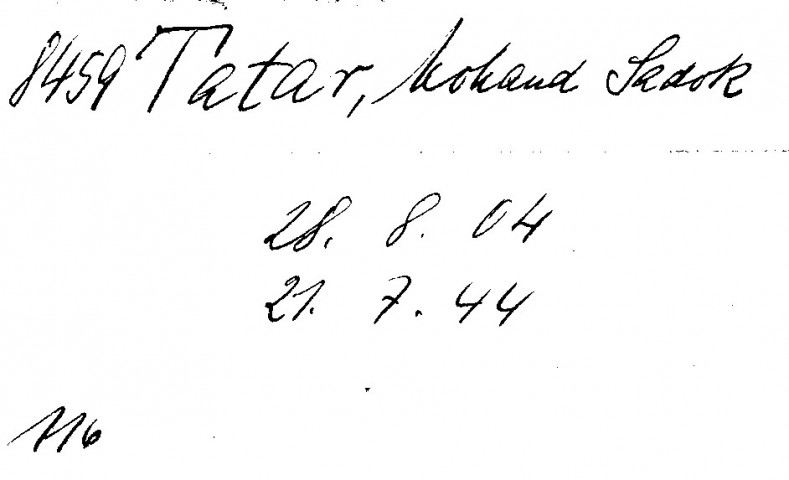 8459 Tatar, Mohand Sadok
28. 8. 04
21. 7. 44
116